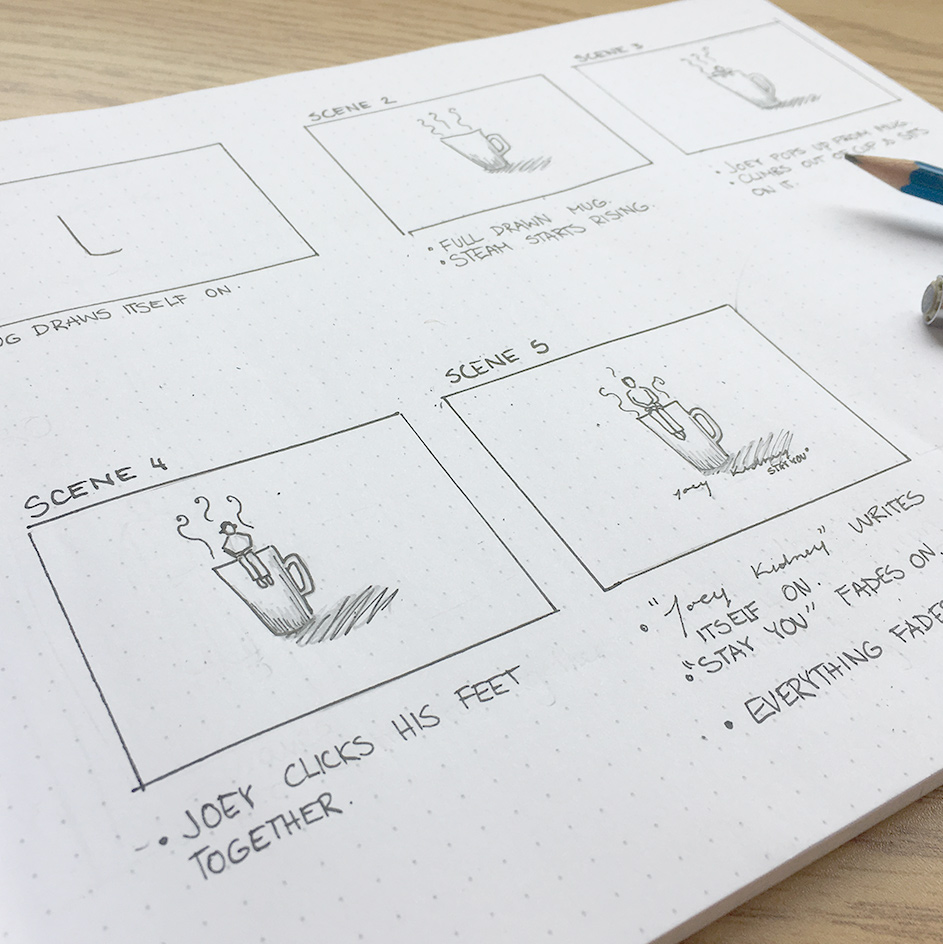 DRAWS ITSELF ON.
SCENE 2
• FULL DRAWN MUG.
• STEAM STARTS RISING.
SCENE 3
• JOEY POPS UP FROM MUG.
• CLIMBS OUT OF CUP & SITS
ON IT.
SCENE 4
• JOEY CLICKS HIS FEET
TOGETHER.
SCENE 5
Joey Kidney
STAY YOU"
• "Joey Kidney" WRITES
ITSELF ON.
• "STAY YOU" FADES ON
• EVERYTHING FADES